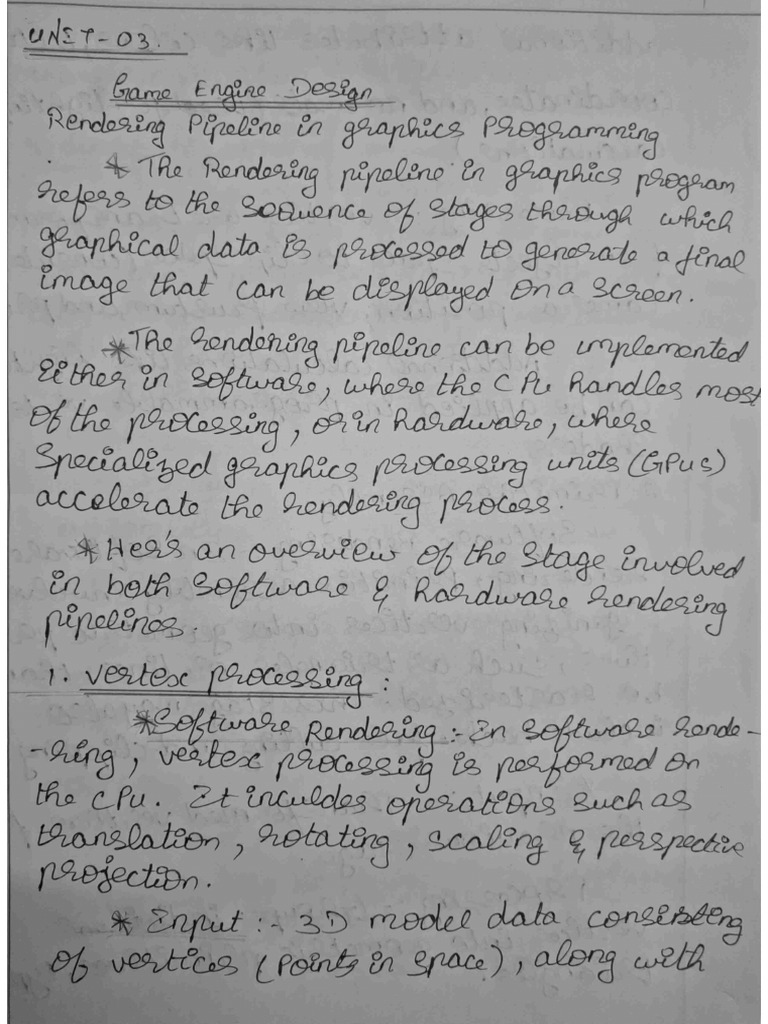 UNIT-03.
Game Engine Design
Rendering Pipeline in graphics Programming
* The Rendering pipeline in graphics program
refers to the sequence of stages through which
graphical data is processed to generate a final
image that can be displayed on a screen.
* The rendering pipeline can be implemented
Either in software, where the CPU handles most
of the processing, or in hardware, where
specialized graphics processing units (GPUs)
accelerate the rendering process.
* Her's an overview of the stage involved
in both software & hardware rendering
pipelines.
1. vertex processing :
* Software Rendering :- In software rende-
-ring, vertex processing is performed on
the CPU. It inculdes operations such as
translation, rotating, scaling & perspective
projection.
* Input :- 3D model data consisting
of vertices (points in space), along with